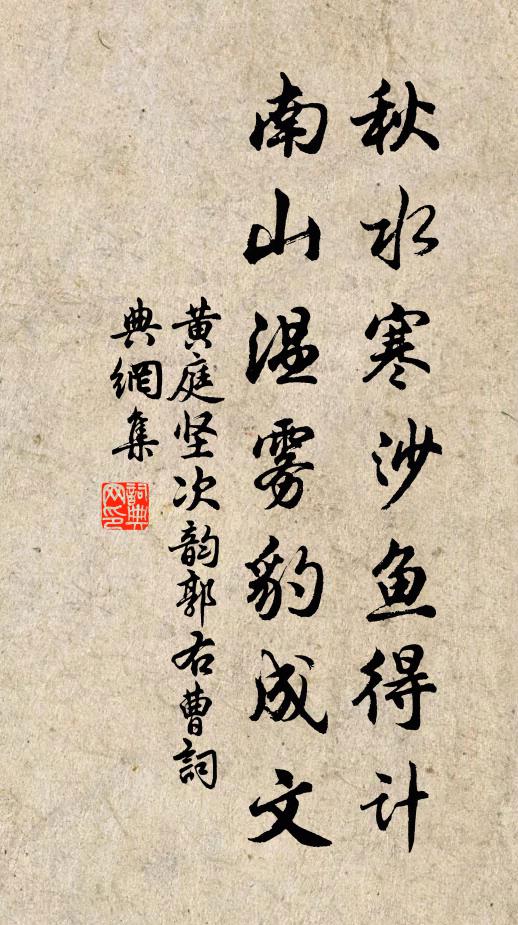 秋水寒沙鱼得计
南山温雾豹成文
黄庭坚次韵郭右曹詞
典網集
詞典网印